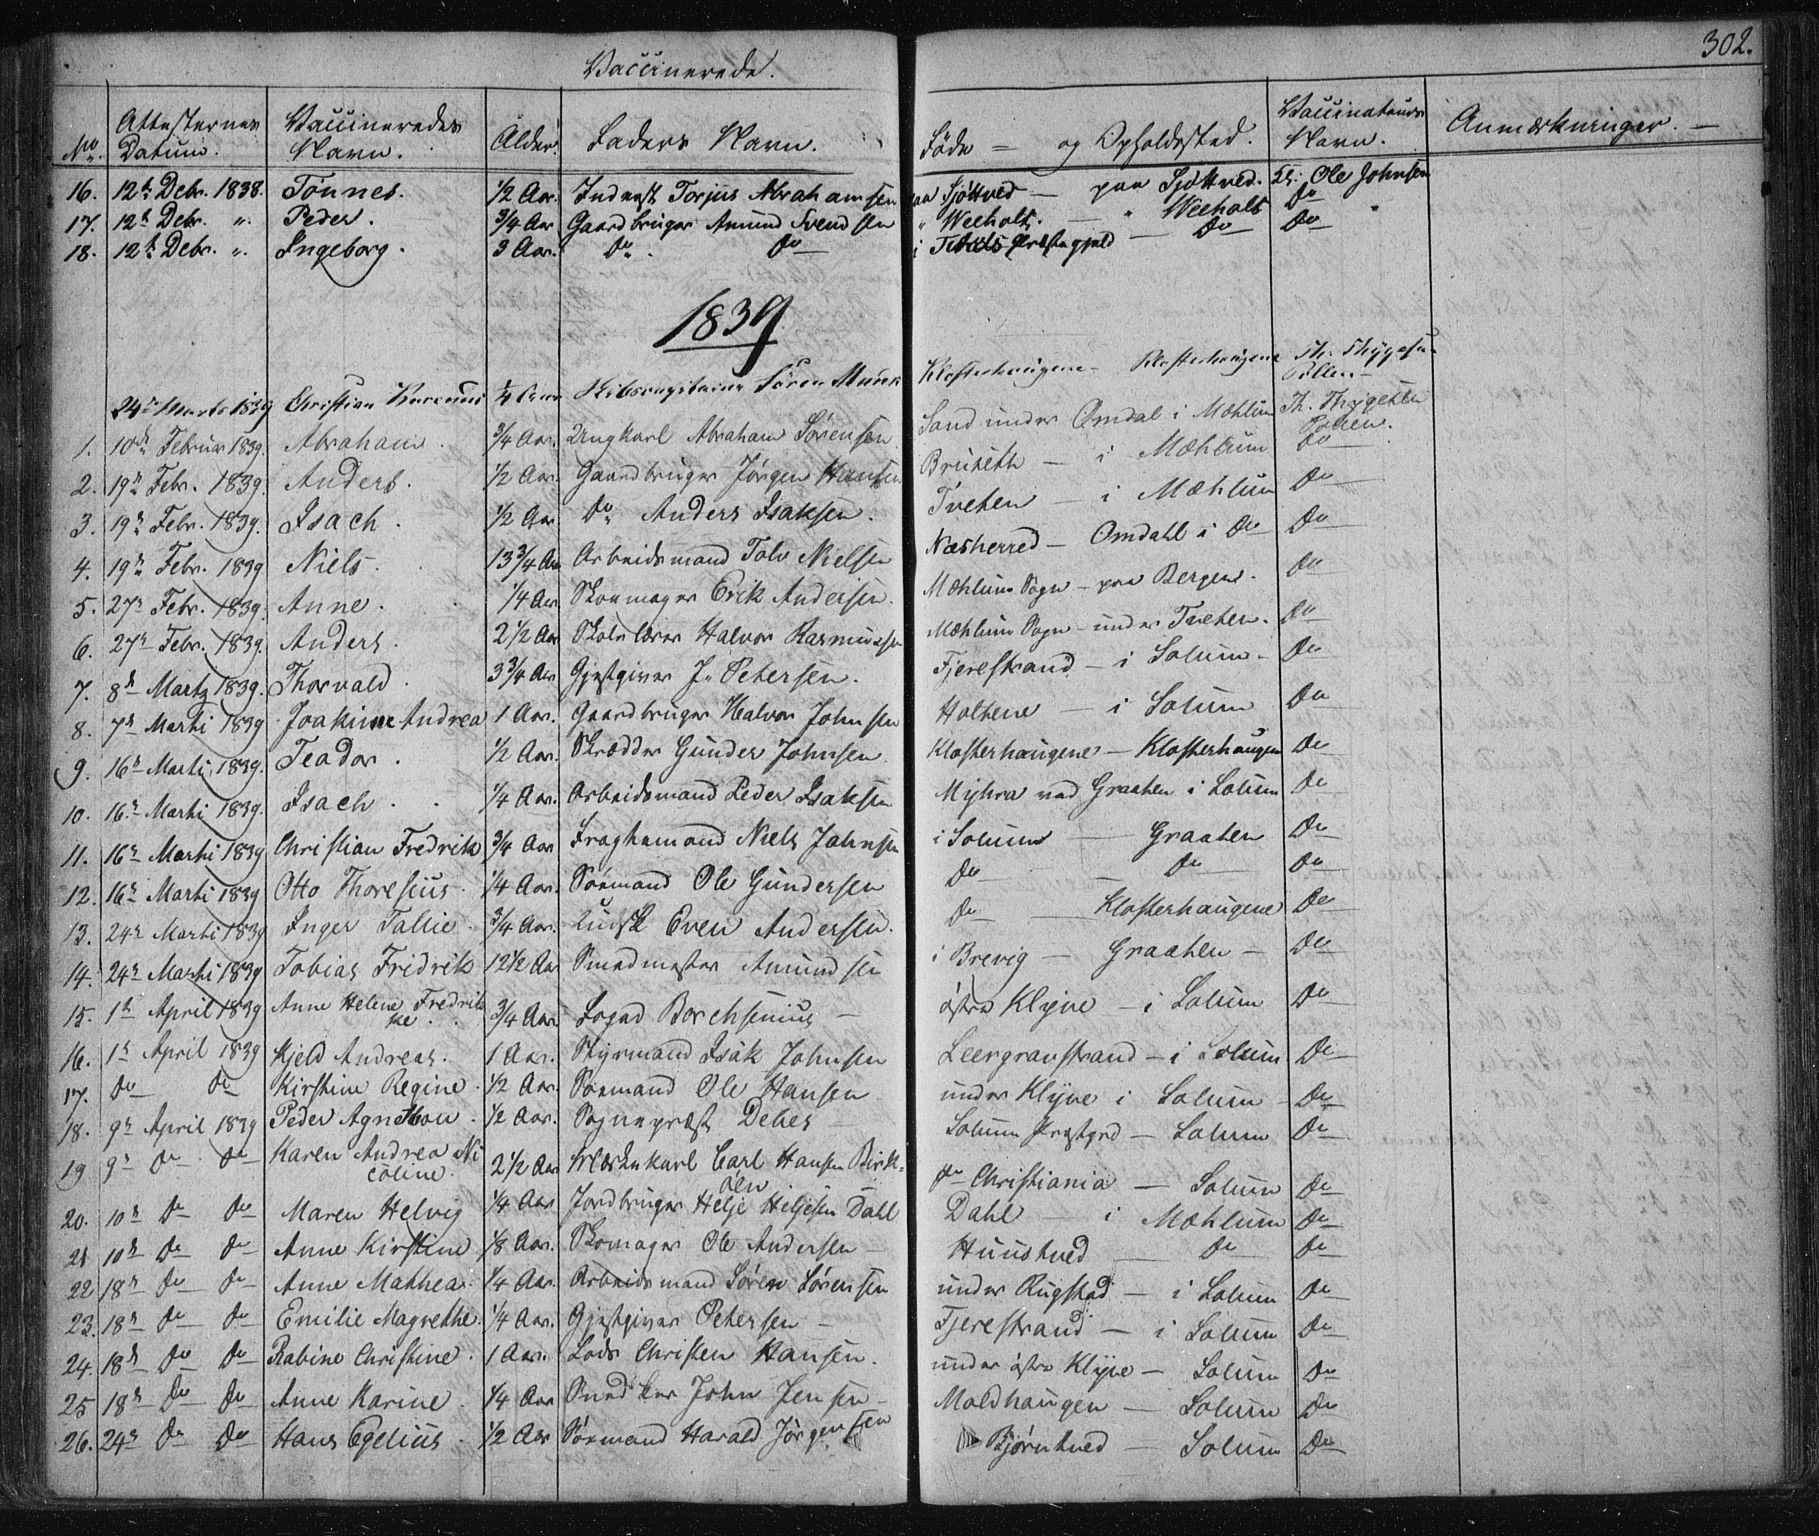 302.
Vaccinerede.
No. Attesternes Datum. Vaccineredes Navn. Alder. Faders Navn. Føde — og Opholdssted. Vaccinateurs Navn. Anmærkninger. —
16. 12te Debr. 1838. Tønnes. 1/2 Aar. Inderst Torjus Abrahamsen paa Sjøttved — paa Sjøttved. Ole Johnsen
17. 12te Debr. „ Peder. 3/4 Aar. Gaardbruger Amund Svendsen „ Weeholt. — „ Weeholt Do
18. 12te Debr. „ Ingeborg. 3 Aar. Do. Do i Præstegjeld — Do Do
1839
24de Marts 1839 Christian 1/4 Aar Søren Munk Klosterhaugene — Klosterhaugene Th. Thygesen Pollen
1. 10de Februar 1839. Abraham. 3/4 Aar. Ungkarl Abraham Sørensen Sand under Omdal i Mæhlum Th. Thygesen Pollen.
2. 19de Febr. 1839. Anders. 1/2 Aar. Gaardbruger Jørgen Hansen Bruseth — i Mæhlum Do
3. 19de Febr. 1839. Isach. 1/2 Aar. Do Anders Isaksen. Tveten — i Mæhlum Do
4. 19de Febr. 1839 Niels. 13 3/4 Aar Arbeidsmand Tolv Nielsen Næsherred — Omdahl i Do Do
5. 27de Febr. 1839. Anne. 1/4 Aar Skomager Erik Andersen. Mæhlums Sogn — paa Bergene. Do
6. 27de Febr. 1839. Anders. 2 1/2 Aar Skolelærer Halvor Rasmussen Mæhlums Sogn — under Tveten. Do
7. 8de Martz 1839. Thorvald. 3 3/4 Aar Gjestgiver J. Petersen. Fjerestrand — i Solum. Do
8. 7de Marti 1839 Joakime Andrea 1 Aar. Gaardbruger Halvor Johnsen Holtene — i Solum Do
9. 16de Marti 1839. Teador. 1/2 Aar. Skrædder Gunder Johnsen. Klosterhaugene — Klosterhaugen Do
10. 16de Marti 1839. Isach. 1/4 Aar. Arbeidsmand Peder Isaksen Myhra ved Graaten i Solum Do
11. 16de Marti 1839 Christian Fredrik 3/4 Aar Fragtemand Niels Johnsen i Solum — Graaten Do
12. 16de Marti 1839 Otto Thoresius 1/4 Aar. Sømand Ole Gundersen Do Do Do
13. 24de Marti 1839 Inger Tallie. 3/4 Aar. Even Andersen. Do Klosterhaugene Do
14. 24de Marti 1839 Tobias Fridrik 12 1/2 Aar Smedmester Amundsen i Brevig — Graaten — Do
15. 1ste April 1839 Anne Helene Fredrikke. 3/4 Aar. Fogad Borchsenius — østre Klyve — i Solum Do
16. 1ste April 1839 Kjeld Andreas. 1 Aar. Styrmand Isak Johnsen Leergravstrand — i Solum Do
17. Do Do Kirstine Regine. 1/2 Aar. Sømand Ole Hansen under Klyve i Solum — Do
18. 9de April 1839 Peder Agnethon 1/2 Aar. Sognepræst Debes — Solum Præstgrd — Solum Do
19 9de Do Do Karen Andrea Nicoline. 2 1/2 Aar Carl Hansen Birkøen Christiania — Solum Do
20. 10de Do Do Maren Helvig 1/4 Aar Jordbruger Helje Heljesen Dahl Dahl — i Mæhlum Do
21 10de Do Do Anne Kirstine 1/8 Aar. Skomager Ole Andersen — Huustved — Do Do
22 18de Do Do Anne Mathea. 1/4 Aar. Arbeidsmand Søren Sørensen under Rugstad — i Solum Do
23. 18de Do Do Emilie Magrethe. 1/4 Aar. Gjestgiver Petersen — Fjerestrand — i Solum Do
24. 18de Do Do Rabine Christine. 1 Aar. Lods Christen Hansen. under østre Klyve — Solum Do
25 18de Do Do Anne Karine. 1/4 Aar Snedker John Jensen — Moldhaugen — Solum Do
26. 24de Do Do Hans Egelius 1/2 Aar Sømand Harald Jørgensen Bjørntved — Solum Do